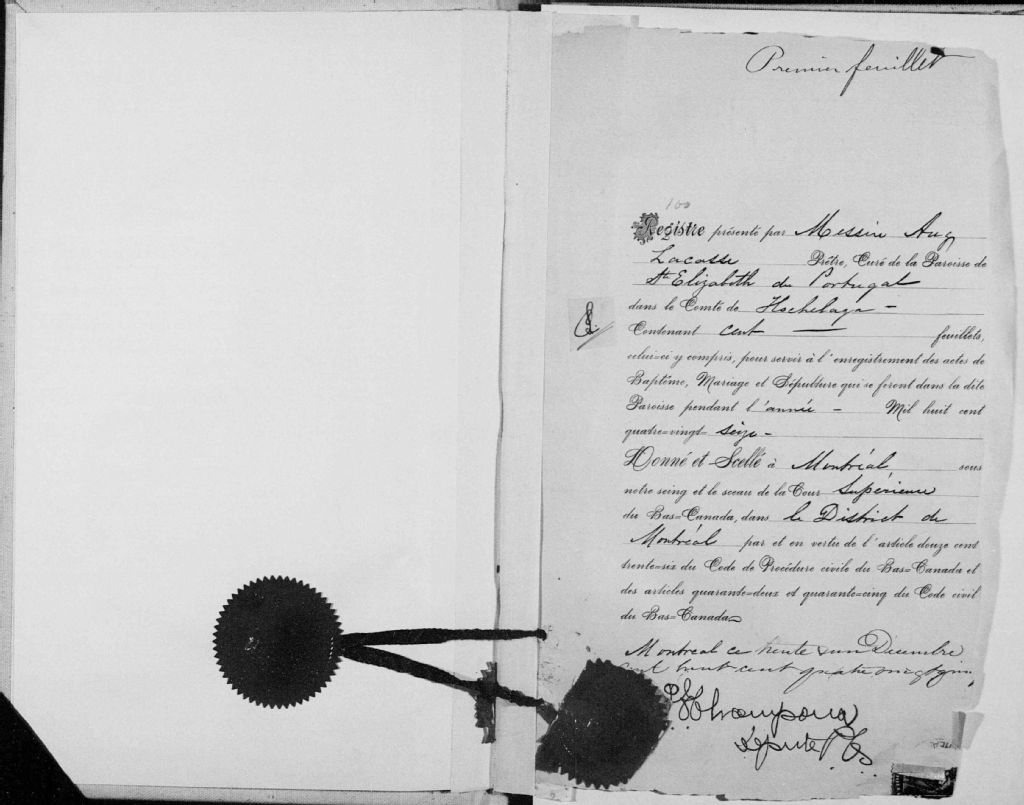 Premier feuillet
100
Registre présenté par Messire Aug
Lacasse Prêtre, Curé de la Paroisse de
Ste Elizabeth du Portugal
dans le Comté de Hochelaga -
Contenant cent — feuillets,
celui=ci y compris, pour servir à l'enregistrement des actes de
Baptême, Mariage et Sépulture qui se feront dans la dite
Paroisse pendant l'année - Mil huit cent
quatre=vingt= seize -
Donné et Scellé à Montréal, sous
notre seing et le sceau de la Cour Supérieure
du Bas=Canada, dans le District de
Montréal par et en vertu de l'article douze cent
trente=six du Code de Procédure civile du Bas=Canada et
des articles quarante=deux et quarante=cinq du Code civil
du Bas=Canada
Montreal ce trente & un Décembre
huit cent quatre vingt
Député P.